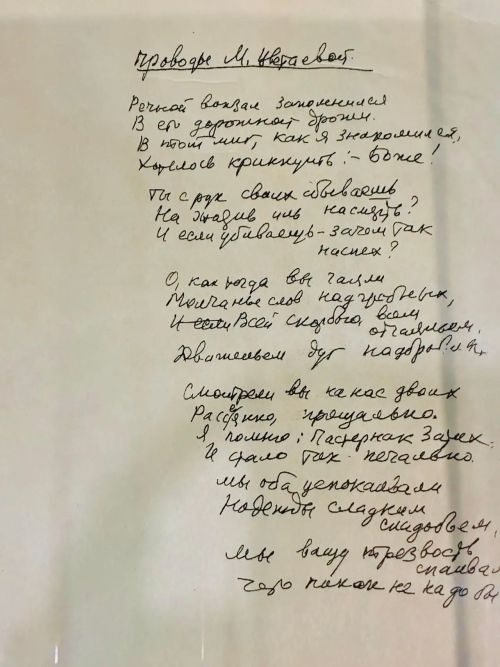 Проводы М. Цветаевой.
Речной вокзал запомнился
В его дорожной дрожи.
В этот миг, как я знакомился,
Хотелось крикнуть: – Боже!
Ты с рук своих сбываешь
На
И если убиваешь – зачем так
наспех?
О, как тогда вы чаяли
Молчанье слов надгробных,
И если Всей скорбью, всем
отчаяньем,
Движеньем дуг надбровных.
Смотрели вы на нас двоих
Рассеянно, прощально.
Я помню: Пастернак затих.
И стало так печально.
Мы оба успокаивали
Надежды сладким
снадобьем,
Мы вашу трезвость
спаивали
Чего никак не надо бы